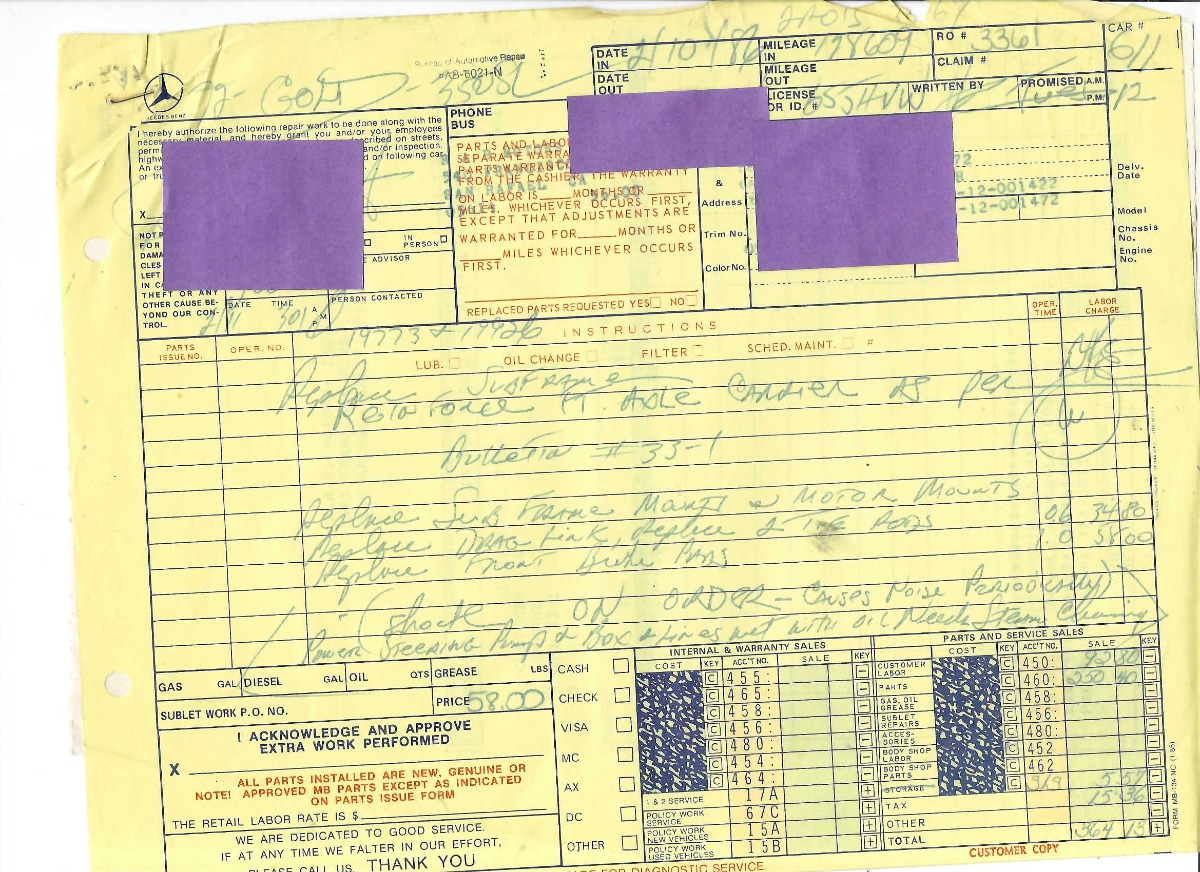 Bureau of Automotive Repair
#AB-6021-N
72 GOLD 350SL
DATE IN 2/10/86 MILEAGE IN 178609 RO # 3361 CAR # 611
DATE OUT MILEAGE OUT CLAIM #
LICENSE OR ID. # 553HVW WRITTEN BY PROMISED A.M. P.M. 12
PHONE
BUS
I hereby authorize the following repair work to be done along with the
necessary material, and hereby grant you and/or your employees
X
PARTS AND LABOR
SEPARATE WARRA
PARTS WARRANTY
FROM THE CASHIER. THE WARRANTY
ON LABOR IS MONTHS OR
MILES, WHICHEVER OCCURS FIRST,
EXCEPT THAT ADJUSTMENTS ARE
WARRANTED FOR MONTHS OR
MILES WHICHEVER OCCURS
FIRST.
SAN RAFAEL CA
REPLACED PARTS REQUESTED YES NO
&
Address
Trim No.
Color No.
72
-12-001422
-12-001422
Delv. Date
Model
Chassis No.
Engine No.
IN PERSON
ADVISOR
THEFT OR ANY
OTHER CAUSE BE-
YOND OUR CON-
TROL.
DATE TIME A M P PERSON CONTACTED
19773 & 19926
INSTRUCTIONS
PARTS ISSUE NO. OPER. NO. OPER. TIME LABOR CHARGE
LUB. OIL CHANGE FILTER SCHED. MAINT. #
Replace SUBFRAME N/C
REINFORCE FT. AXLE CARRIER AS PER
Bulletin # 33-1
Replace Sub Frame Mounts & MOTOR MOUNTS
Replace DRAG Link, Replace 2 TIE RODS 0.6 34.80
Replace Front Brake PADS 1.0 58.00
(Shock ON ORDER - Causes Noise Periodically)
Power Steering Pump & Box & Lines wet with oil (Needs Steam Cleaning)
GAS GAL DIESEL GAL OIL QTS GREASE LBS
SUBLET WORK P.O. NO. PRICE 58.00
I ACKNOWLEDGE AND APPROVE
EXTRA WORK PERFORMED
X
ALL PARTS INSTALLED ARE NEW, GENUINE OR
NOTE! APPROVED MB PARTS EXCEPT AS INDICATED
ON PARTS ISSUE FORM
THE RETAIL LABOR RATE IS $
WE ARE DEDICATED TO GOOD SERVICE.
IF AT ANY TIME WE FALTER IN OUR EFFORT,
PLEASE CALL US. THANK YOU
CASH
CHECK
VISA
MC
AX
DC
OTHER
INTERNAL & WARRANTY SALES
COST KEY ACC'T NO. SALE KEY
C 455:
C 465:
C 458:
C 456:
C 480:
C 454:
C 464:
1 & 2 SERVICE 17A
POLICY WORK SERVICE 67C
POLICY WORK NEW VEHICLES 15A
POLICY WORK USED VEHICLES 15B
PARTS AND SERVICE SALES
COST KEY ACC'T NO. SALE KEY
CUSTOMER LABOR C 450: 92 80
PARTS C 460: 250 40
GAS, OIL GREASE C 458:
SUBLET REPAIRS C 456:
ACCES-SORIES C 480:
BODY SHOP LABOR C 452
BODY SHOP PARTS C 462
STORAGE C 5 57
TAX 15 36
OTHER
TOTAL 364 13
CUSTOMER COPY
FOR DIAGNOSTIC SERVICE.